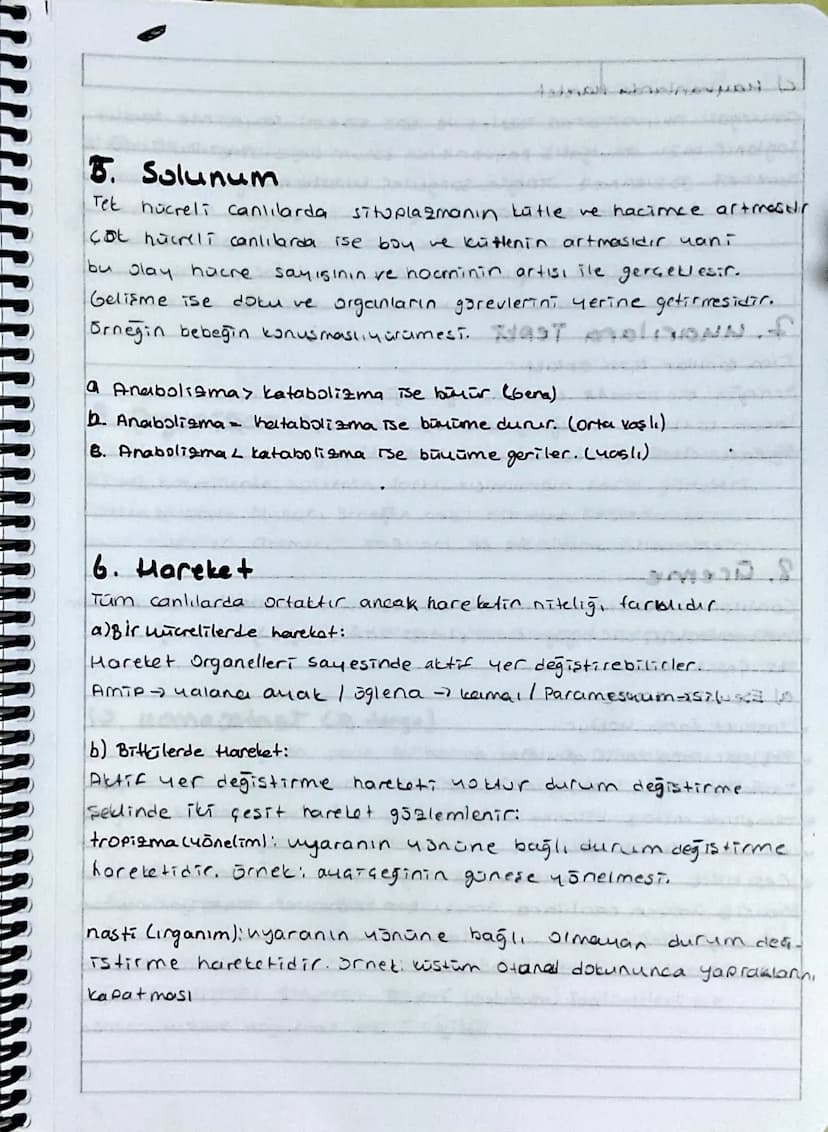 5. Solunum
Tek hücreli canlılarda sitoplazmanın kütle ve hacimce artmasıdır
Çok hücreli canlılarda ise boy ve kütlenin artmasıdır yani
bu olay hücre sayısının ve hacminin artışı ile gerçekleşir.
Gelişme ise doku ve organların görevlerini yerine getirmesidir.
Örneğin bebeğin konuşması, yürümesi.
a Anabolizma > katabolizma ise büyür (genç)
b. Anabolizma = katabolizma ise büyüme durur. (orta yaşlı)
B. Anabolizma < katabolizma ise büyüme geriler. (yaşlı)
6. Hareket
Tüm canlılarda ortaktır ancak hareketin niteliği farklıdır
a) Bir hücrelilerde hareket:
Hareket organelleri sayesinde aktif yer değiştirebilirler.
Amip → yalancı ayak / öglena → kamçı /
b) Bitkilerde Hareket:
Aktif yer değiştirme hareketi yoktur durum değiştirme
şeklinde iki çeşit hareket gözlemlenir:
tropizma (yönelim): uyaranın yönüne bağlı durum değiştirme
hareketidir. Örnek: ayçiçeğinin güneşe yönelmesi.
nasti (ırganım): uyaranın yönüne bağlı olmayan durum değ-
iştirme hareketidir. Örnek: küstüm otunun dokununca yapraklarını
kapatması